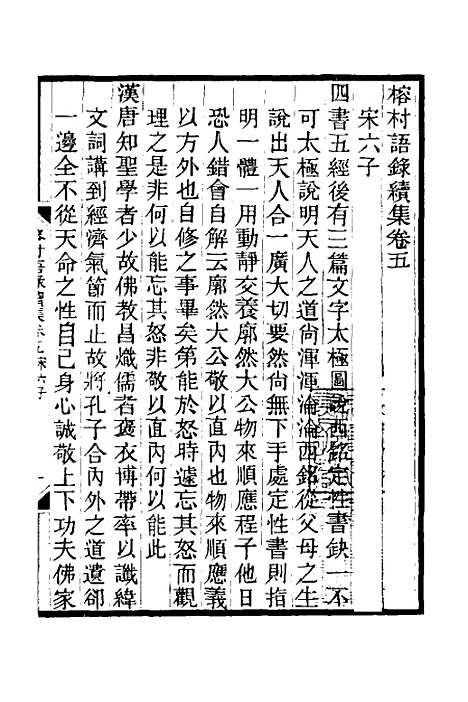 榕村語錄續集卷五
宋六子
四書五經後有三篇文字太極圖說西銘定性書缺一不
可太極說明天人之道尚渾渾淪淪西銘從父母之生
說出天人合一廣大切要然尚無下手處定性書則指
明一體一用動靜交養廓然大公物來順應程子他日
恐人錯會自解云廓然大公敬以直內也物來順應義
以方外也自修之事畢矣第能於怒時遽忘其怒而觀
理之是非何以能忘其怒非敬以直內何以能此
漢唐知聖學者少故佛教昌熾儒者褒衣博帶率以讖緯
文詞講到經濟氣節而止故將孔子合內外之道遺卻
一邊全不從天命之性自己身心誠敬上下功夫佛家
榕村語錄續集卷五宋六子
一